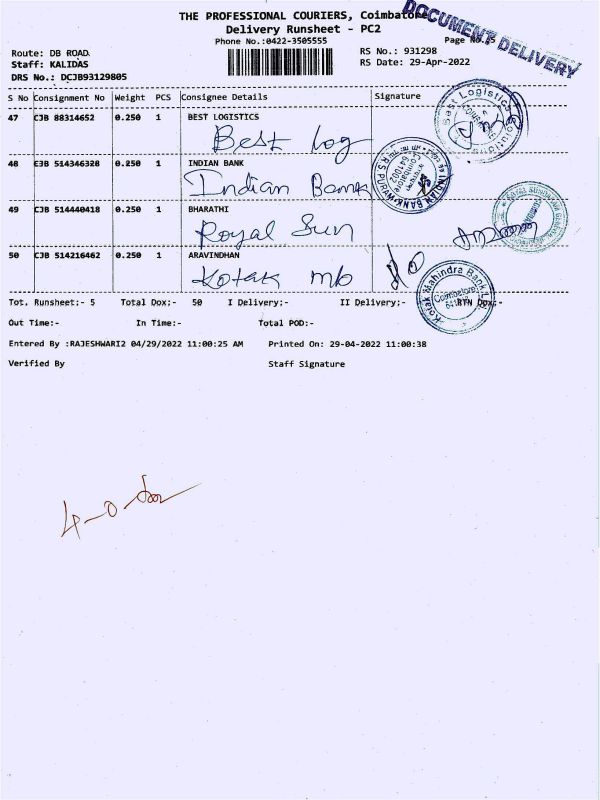 THE PROFESSIONAL COURIERS, Coimbatore
DOCUMENT DELIVERY
Delivery Runsheet - PC2
Phone No.:0422-3505555
Page No.
Route: DB ROAD
Staff: KALIDAS
DRS No.: DCJB93129805
RS No.: 931298
RS Date: 29-Apr-2022
S No Consignment No Weight PCS Consignee Details Signature
47 CJB 88314652 0.250 1 BEST LOGISTICS
Best Log
Best Logistics Solutions
48 CJB 514346328 0.250 1 INDIAN BANK
Indian Bank
INDIAN BANK R S PURAM Coimbatore
49 CJB 514440418 0.250 1 BHARATHI
Royal Sun
ROYAL SUNDARAM
50 CJB 514216462 0.250 1 ARAVINDHAN
Kotak mb
Kotak Mahindra Bank Ltd
Coimbatore
Tot. Runsheet:- 5 Total Dox:- 50 I Delivery:- II Delivery:- RTN Dox:-
Out Time:- In Time:- Total POD:-
Entered By :RAJESHWARI2 04/29/2022 11:00:25 AM Printed On: 29-04-2022 11:00:38
Verified By Staff Signature
4-0-